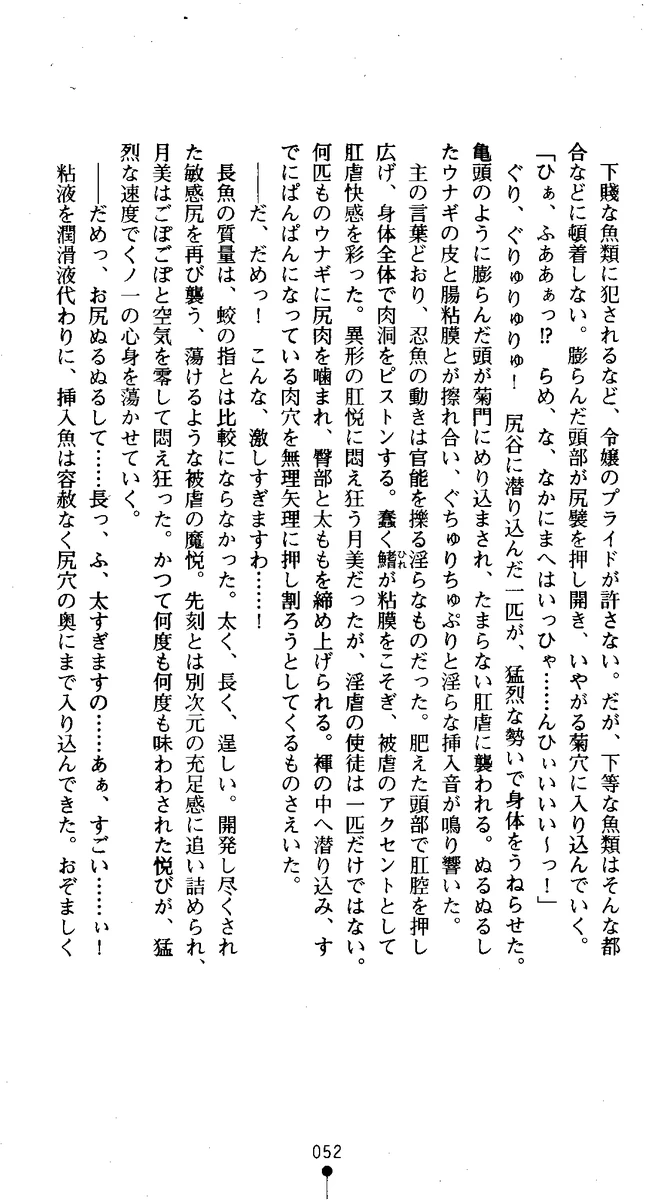 下賤な魚類に犯されるなど、令嬢のプライドが許さない。だが、下等な魚類はそんな都
合などに頓着しない。膨らんだ頭部が尻襞を押し開き、いやがる菊穴に入り込んでいく。
「ひぁ、ふああぁっ!?　らめ、な、なかにまへはいっひゃ……んひぃいいい〜っ！」
ぐり、ぐりゅりゅりゅ！　尻谷に潜り込んだ一匹が、猛烈な勢いで身体をうねらせた。
亀頭のように膨らんだ頭が菊門にめり込まされ、たまらない肛虐に襲われる。ぬるぬるし
たウナギの皮と腸粘膜とが擦れ合い、ぐちゅりちゅぷりと淫らな挿入音が鳴り響いた。
主の言葉どおり、忍魚の動きは官能を擽る淫らなものだった。肥えた頭部で肛腔を押し
広げ、身体全体で肉洞をピストンする。蠢く鰭が粘膜をこそぎ、被虐のアクセントとして
ひれ
肛虐快感を彩った。異形の肛悦に悶え狂う月美だったが、淫虐の使徒は一匹だけではない。
何匹ものウナギに尻肉を噛まれ、臀部と太ももを締め上げられる。褌の中へ潜り込み、す
でにぱんぱんになっている肉穴を無理矢理に押し割ろうとしてくるものさえいた。
――だ、だめっ！　こんな、激しすぎますわ……！
長魚の質量は、蛟の指とは比較にならなかった。太く、長く、逞しい。開発し尽くされ
た敏感尻を再び襲う、蕩けるような被虐の魔悦。先刻とは別次元の充足感に追い詰められ、
月美はごぽごぽと空気を零して悶え狂った。かつて何度も何度も味わわされた悦びが、猛
烈な速度でくノ一の心身を蕩かせていく。
――だめっ、お尻ぬるぬるして……長っ、ふ、太すぎますの……あぁ、すごい……ぃ！
粘液を潤滑液代わりに、挿入魚は容赦なく尻穴の奥にまで入り込んできた。おぞましく
052